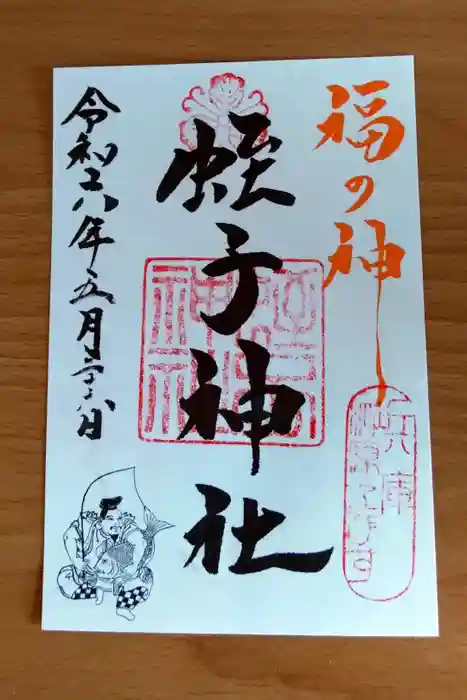 福の神
兵庫
蛭子神社
令和六年五月二十八日